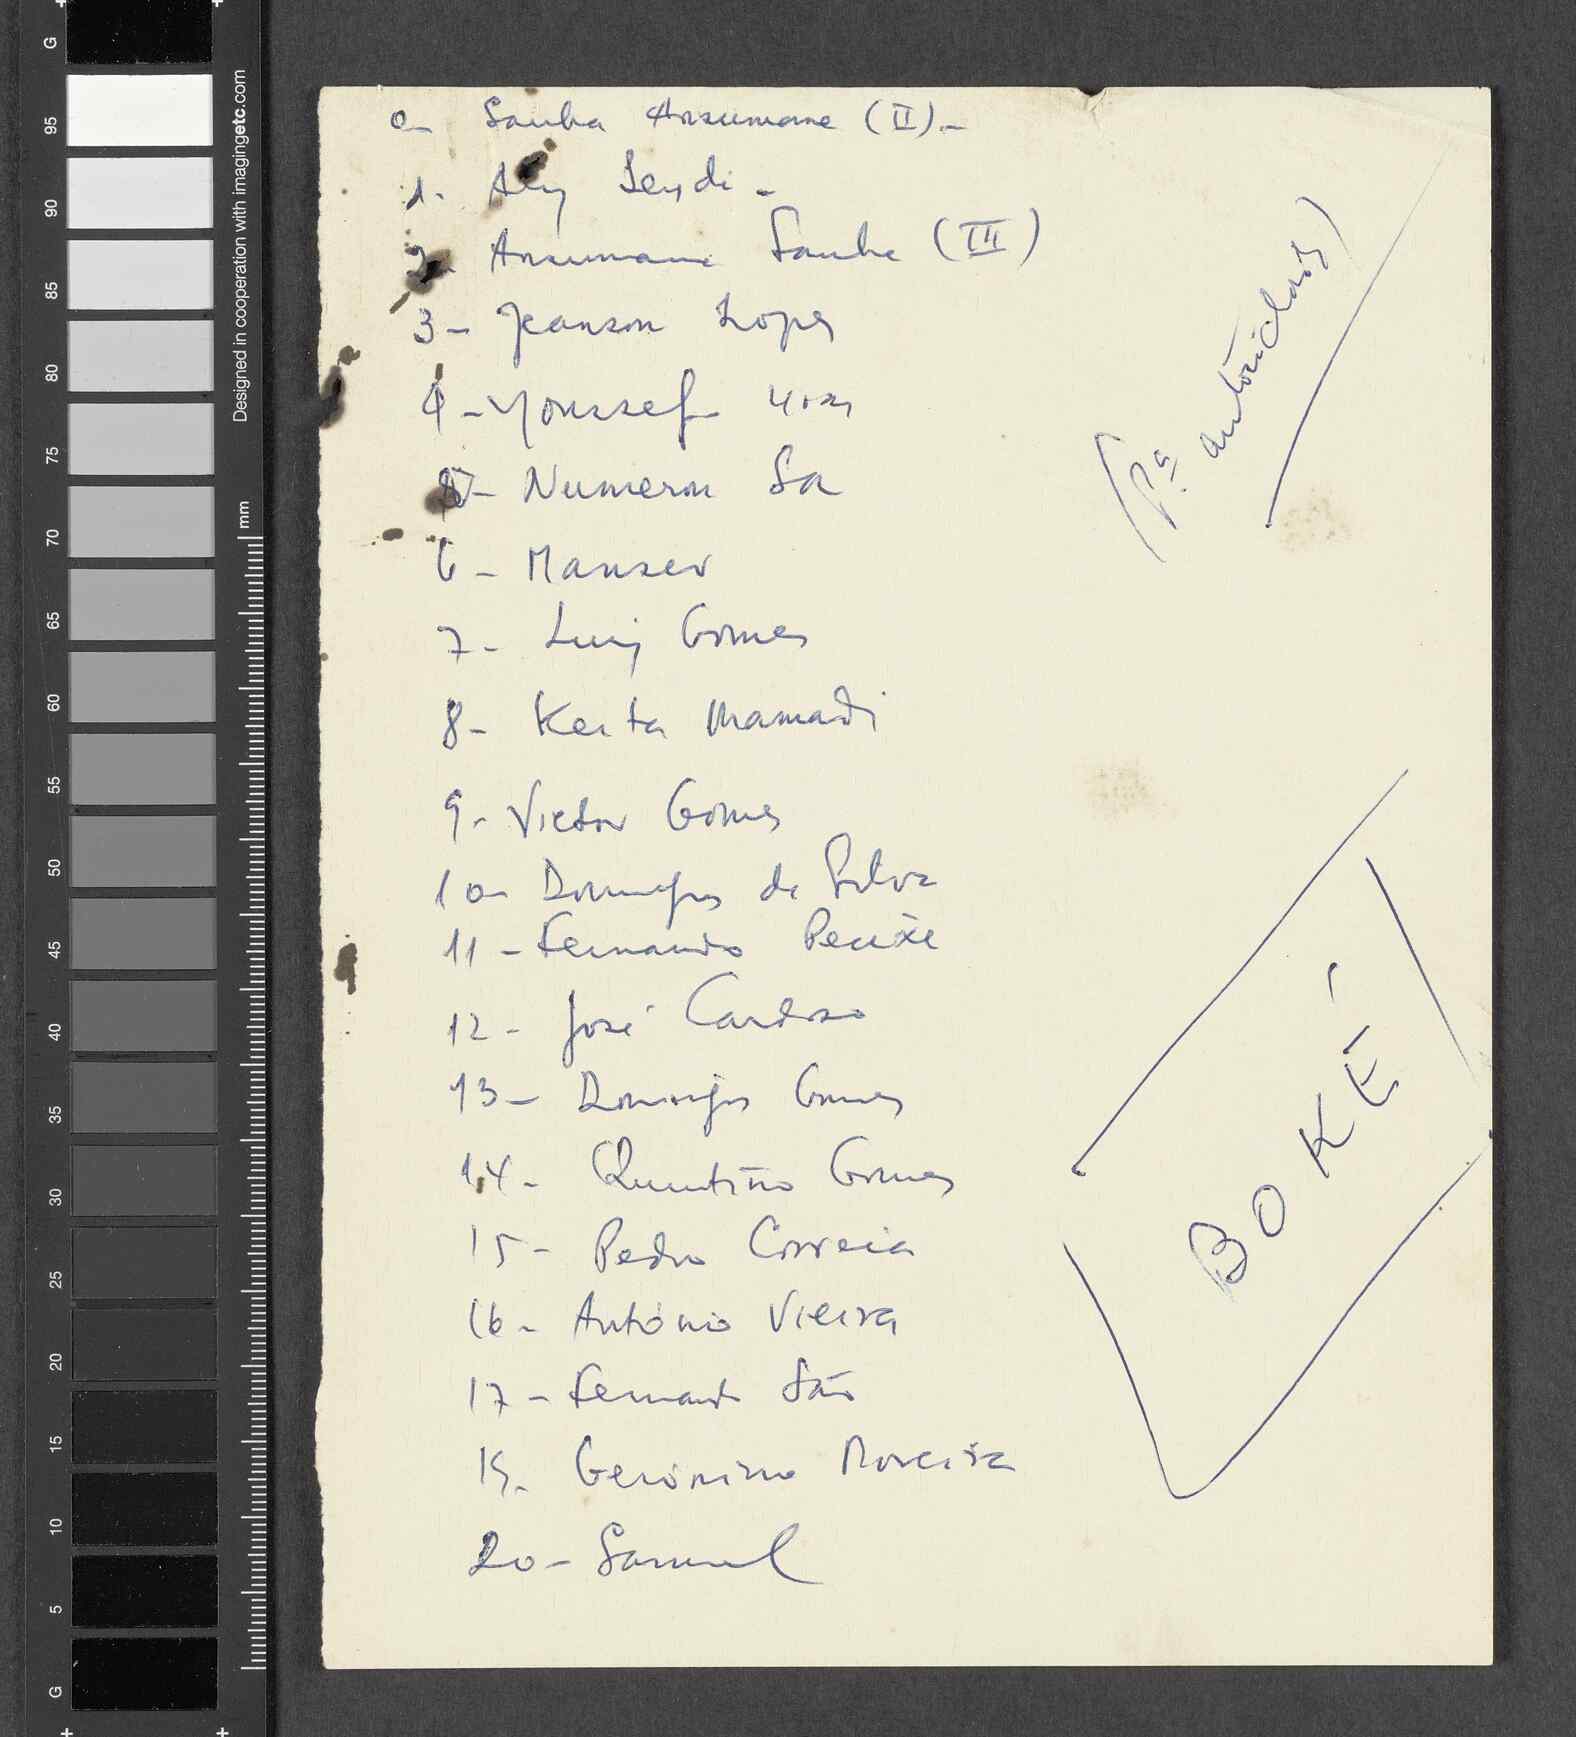 0- Sauba Ansumane (II).-
1. Aly Seydi -
2. Ansumane Sauba (III)
3- Jeanson Lopes
4- Youssef
5- Numeron Sa
6- Manser
7- Luiz Gomes
8- Keita Mamadi
9- Victor Gomes
10- Domingos da Silva
11- Fernando Peixe
12- José Cardoso
13- Domingos Gomes
14- Quintino Gomes
15- Pedro Correia
16- António Vieira
17- Fernando São
19. Gerónimo Moreira
20- Samuel
(Pª autoridades)
BOKÉ
G
95
90
85
80
75
70
65
60
55
50
45
40
35
30
25
20
15
10
5
G
Designed in cooperation with imagingetc.com
mm